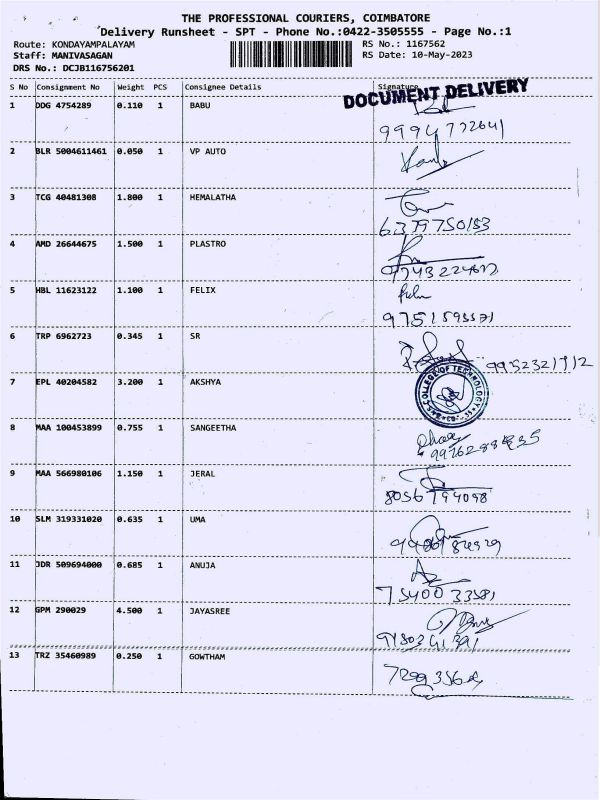 THE PROFESSIONAL COURIERS, COIMBATORE
Delivery Runsheet - SPT - Phone No.:0422-3505555 - Page No.:1
Route: KONDAYAMPALAYAM RS No.: 1167562
Staff: MANIVASAGAN RS Date: 10-May-2023
DRS No.: DCJB116756201
S No Consignment No Weight PCS Consignee Details Signature
DOCUMENT DELIVERY
1 DDG 4754289 0.110 1 BABU
9994772641
2 BLR 5004611461 0.050 1 VP AUTO
3 TCG 40481308 1.800 1 HEMALATHA
6379750183
4 AMD 26644675 1.500 1 PLASTRO
5 HBL 11623122 1.100 1 FELIX
6 TRP 6962723 0.345 1 SR
7 EPL 40204582 3.200 1 AKSHYA
COLLEGE OF TECHNOLOGY
8 MAA 100453899 0.755 1 SANGEETHA
9 MAA 566980106 1.150 1 JERAL
8056794098
10 SLM 319331020 0.635 1 UMA
11 JDR 509694000 0.685 1 ANUJA
12 GPM 290029 4.500 1 JAYASREE
13 TRZ 35460989 0.250 1 GOWTHAM